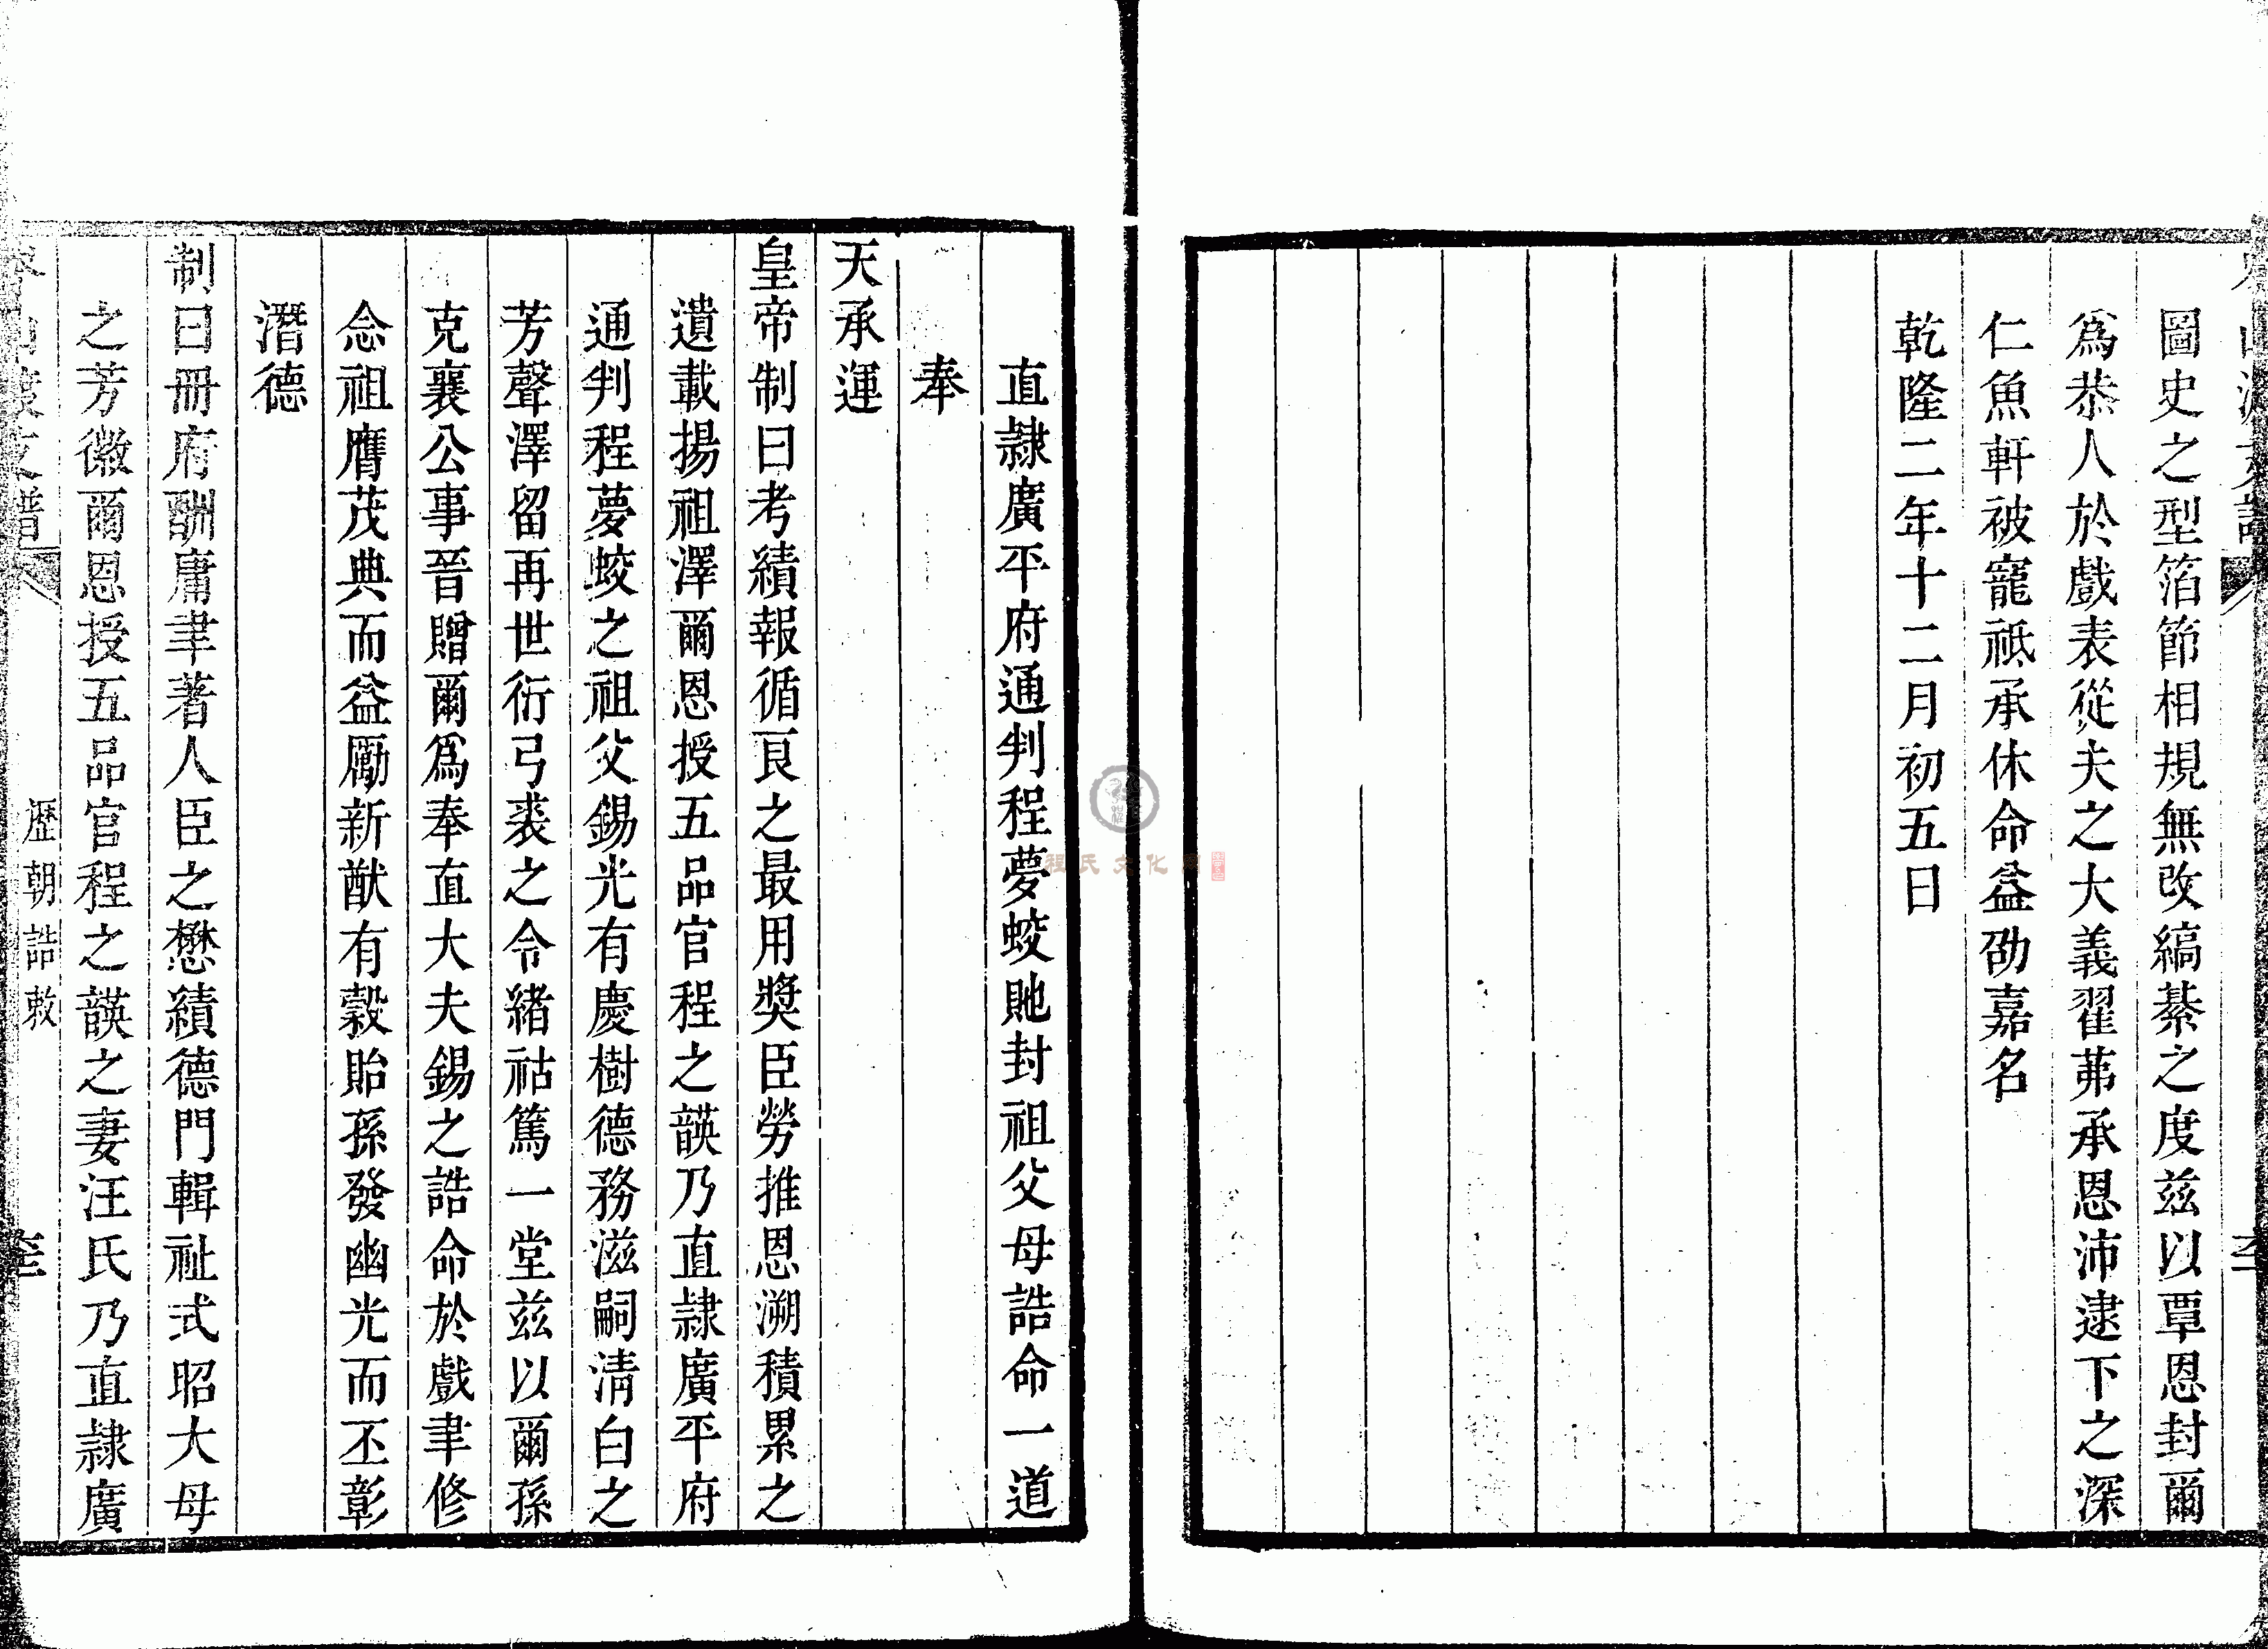 圖史之型箔節相規無改縞綦之度兹以覃恩封爾
爲恭人於戲表從夫之大義翟茀承恩沛逮下之深
仁魚軒被寵祗承休命益劭嘉名
乾隆二年十二月初五日
直隷廣平府通判程夢蛟貤封祖父母誥命一道
奉
天承運
皇帝制曰考績報循良之最用奬臣勞推恩溯積累之
遺載揚祖澤爾恩授五品官程之韺乃直隷廣平府
通判程夢蛟之祖父錫光有慶樹德務滋嗣清白之
芳聲澤留再世衍弓裘之令緒祜篤一堂兹以爾孫
克襄公事晉贈爾爲奉直大夫錫之誥命於戲聿修
念祖膺茂典而益勵新猷有穀貽孫發幽光而丕彰
潛德
制曰冊府酬庸聿著人臣之懋績德門輯祉式昭大母
之芳徽爾恩授五品官程之韺之妻汪氏乃直隷廣
歷朝誥敕
程氏文化